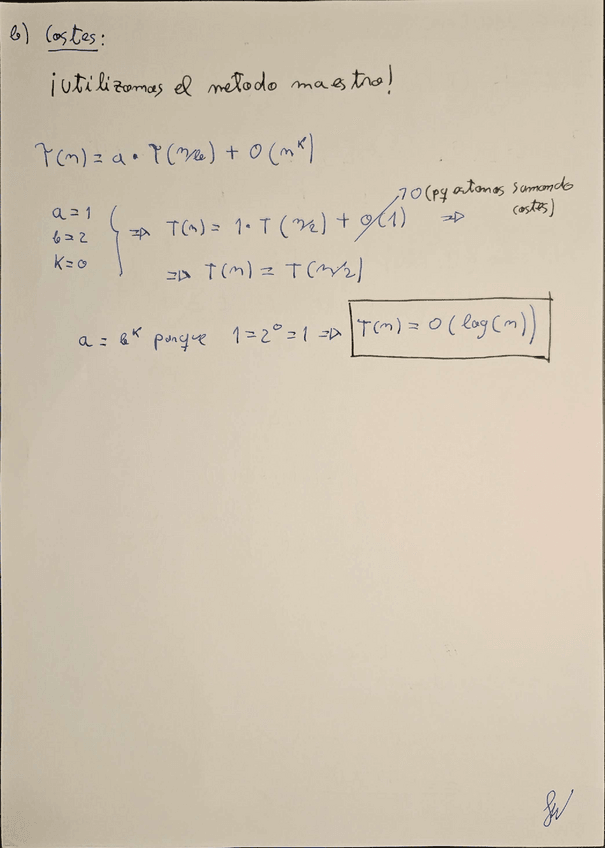 b) Costes:
¡Utilizamos el método maestro!
T(n) = a · T(n/b) + O(n^k)
a = 1
b = 2
k = 0
⇒ T(n) = 1 · T(n/2) + O(1) → 0 (pq estamos sumando costes) ⇒
⇒ T(n) = T(n/2)
a = b^k porque 1 = 2^0 = 1 ⇒ T(n) = O(log(n))